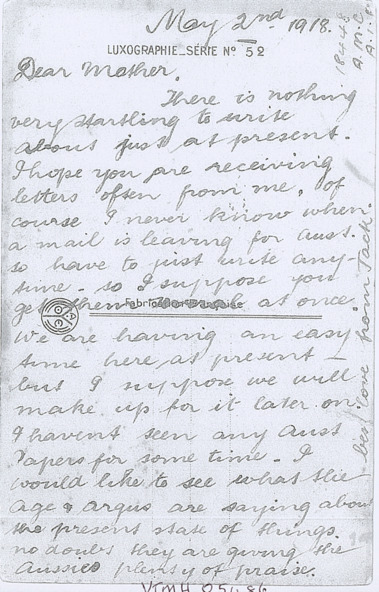 May 2nd 1918.
LUXOGRAPHIE_SÉRIE Nº 52
Dear Mother,
There is nothing
very startling to write
about just at present.
I hope you are receiving
letters often from me, of
course I never know when
a mail is leaving for Aust.
so have to just write any-
time. so I suppose you
get them at once
Fabrication Française
We are having an easy
time here at present –
but I suppose we will
make up for it later on.
I havent seen any Aust
Papers for some time. I
would like to see what the
Age & Argus are saying about
the present state of things.
no doubt they are giving the
Aussies plenty of praise.
best love from Jack.
18448
A.M.C
A.I.F.